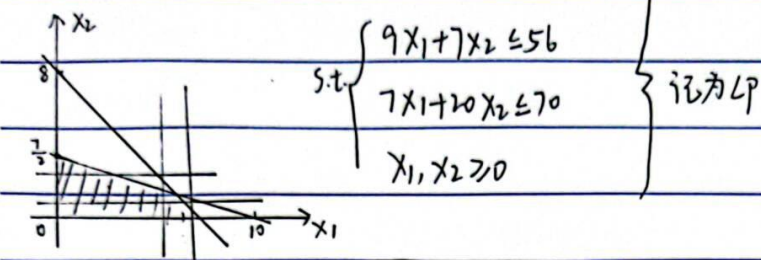 x₂
8
7/2
0
10
x₁
s.t.
9x₁+7x₂≤56
7x₁+20x₂≤70
x₁,x₂≥0
记为LP